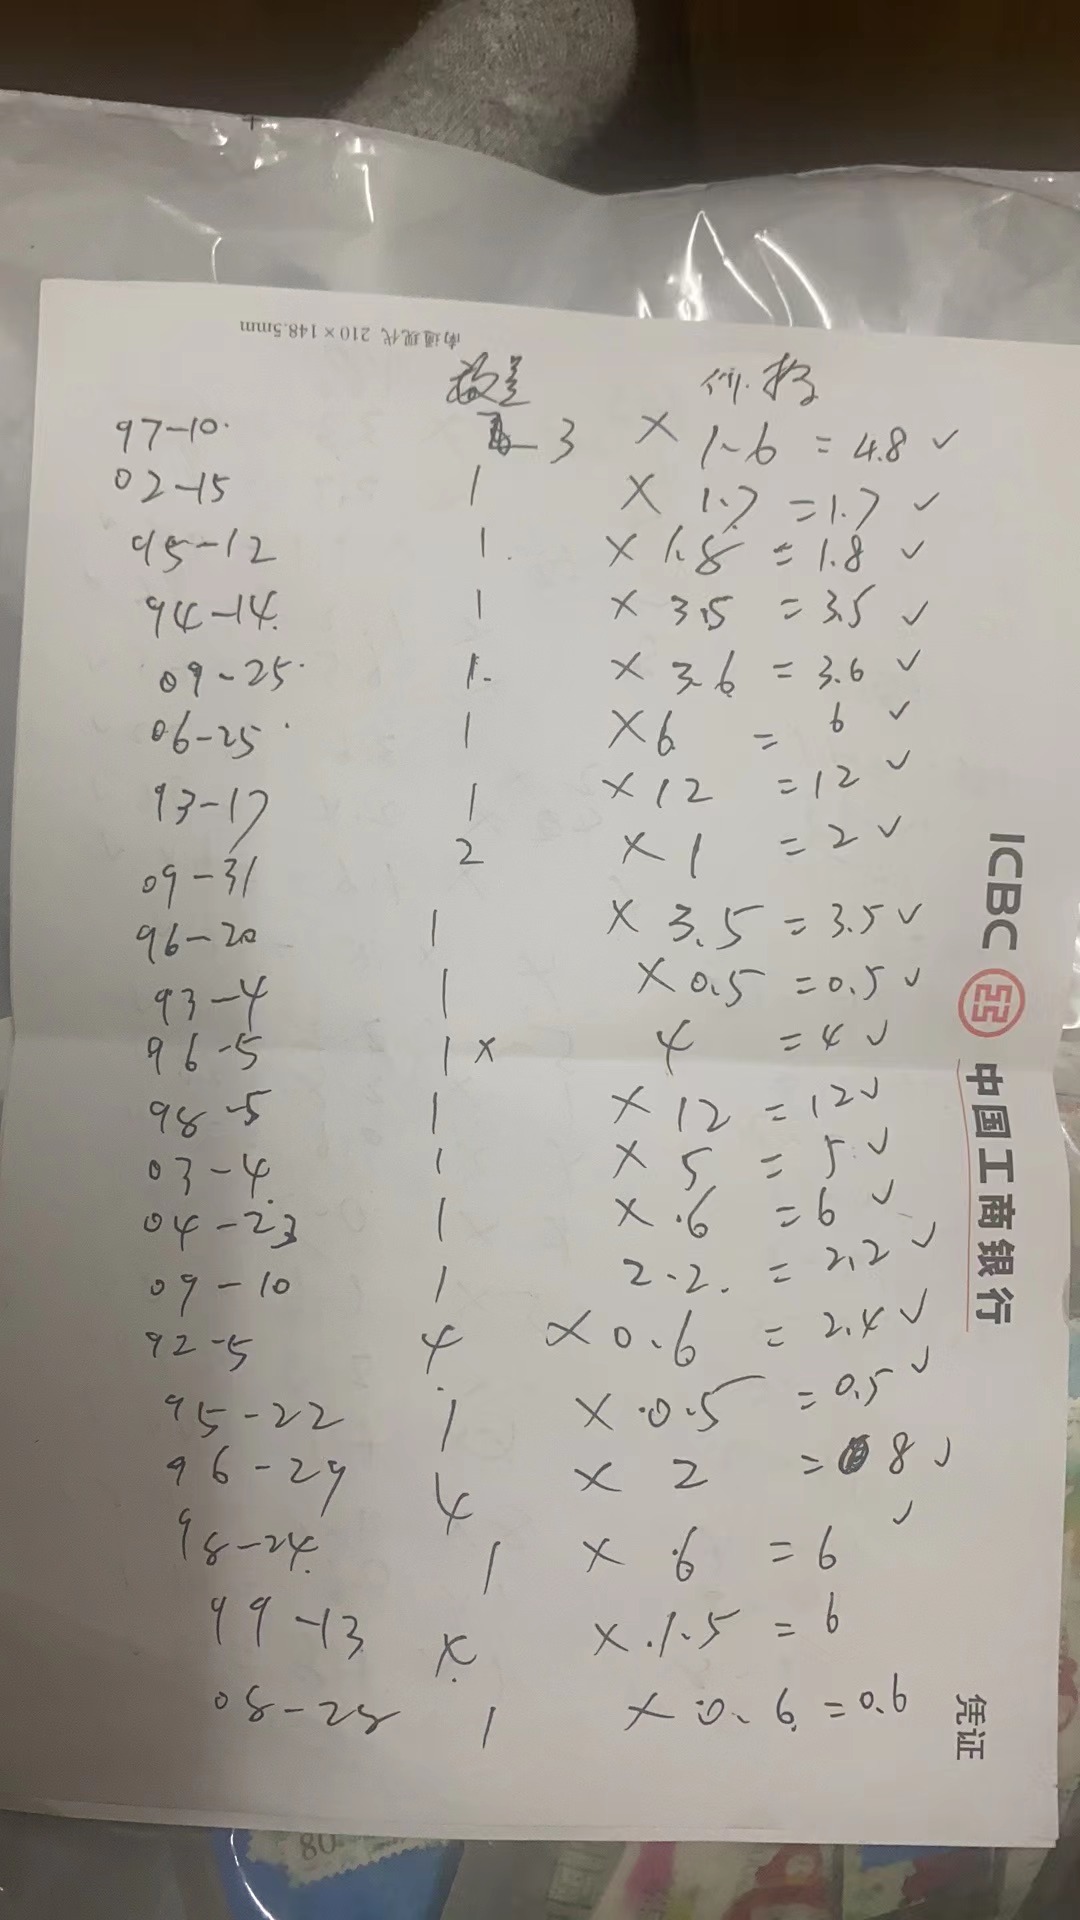 南通现代 210×148.5mm
数量 价格
97-10 3 × 1.6 = 4.8 ✓
02-15 1 × 1.7 = 1.7 ✓
95-12 1 × 1.8 = 1.8 ✓
94-14 1 × 3.5 = 3.5 ✓
09-25 1 × 3.6 = 3.6 ✓
06-25 1 × 6 = 6 ✓
93-17 1 × 12 = 12 ✓
09-31 2 × 1 = 2 ✓
96-20 1 × 3.5 = 3.5 ✓
93-4 1 × 0.5 = 0.5 ✓
96-5 1 × 4 = 4 ✓
98-5 1 × 12 = 12 ✓
03-4 1 × 5 = 5 ✓
04-23 1 × 6 = 6 ✓
09-10 1 2.2 = 2.2 ✓
92-5 4 × 0.6 = 2.4 ✓
95-22 1 × 0.5 = 0.5 ✓
96-29 4 × 2 = 8 ✓
98-24 1 × 6 = 6 ✓
99-13 4 × 1.5 = 6
08-28 1 × 0.6 = 0.6
ICBC 中国工商银行
凭证
80